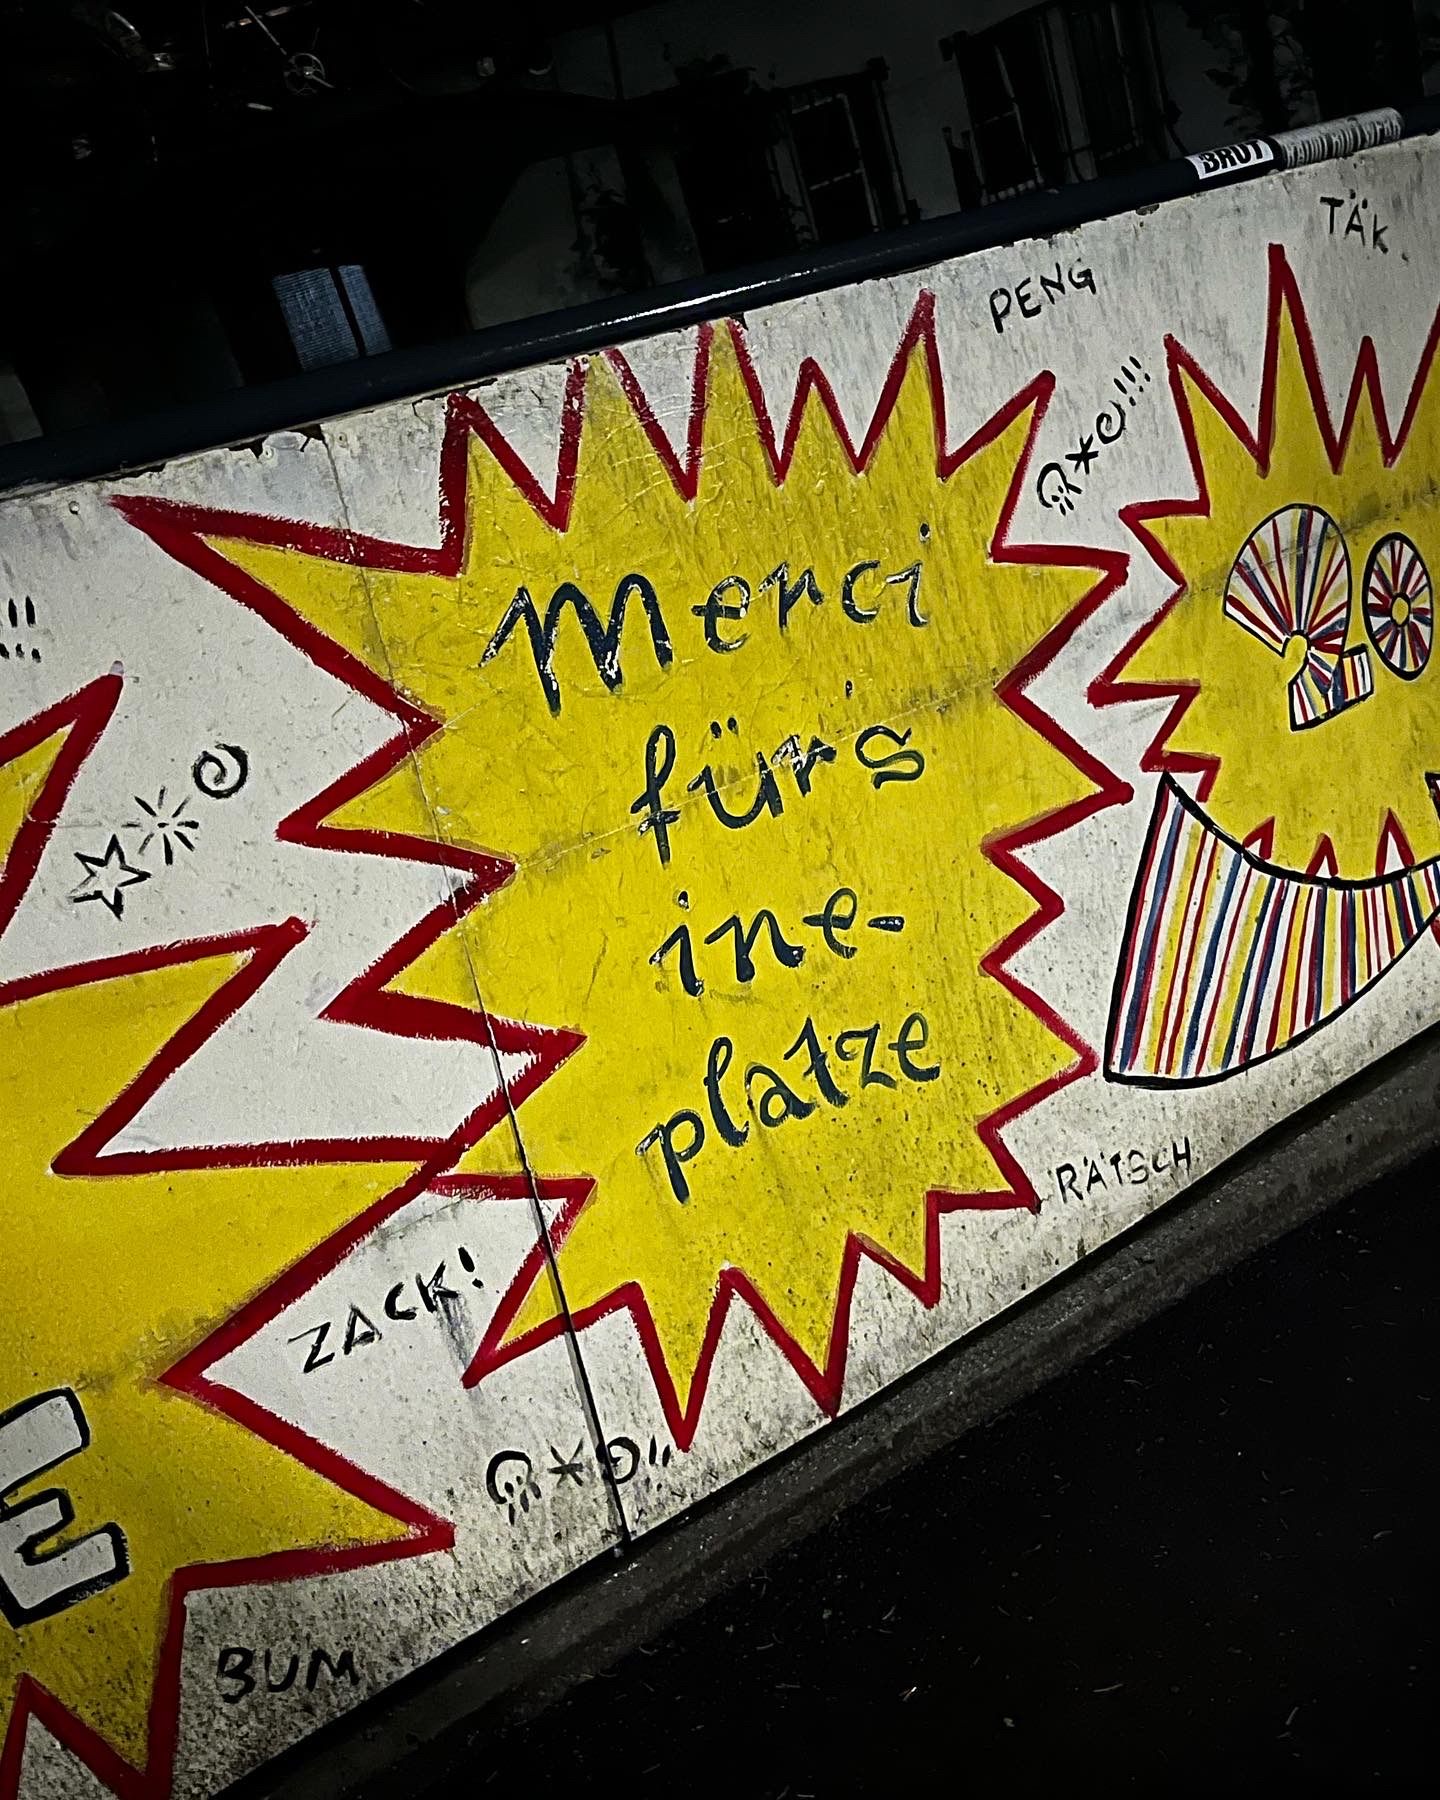 BRUT
TÄK
PENG
!!!
!!!
Merci
für's
ine-
platze
20
RÄTSCH
ZACK!
E
BUM